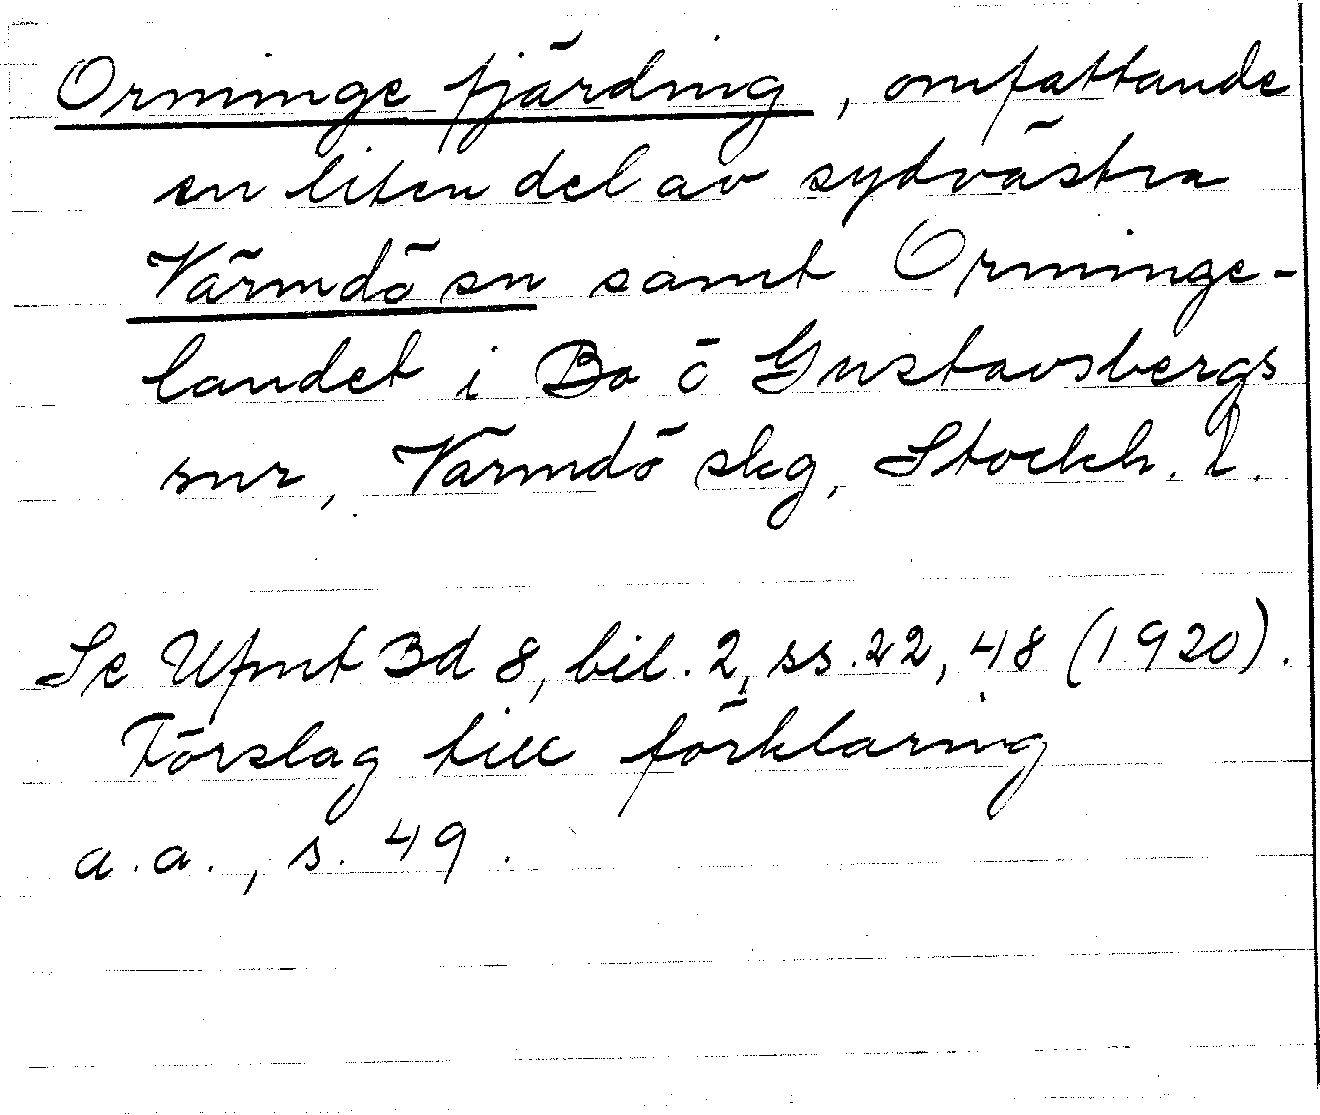 Orminge fjärding, omfattande
en liten del av sydvästra
Värmdö sn samt Orminge-
landet i Bo o Gustavsbergs
snr, Värmdö skg, Stockh. l.
Se Ufmt Bd 8, bil. 2, ss. 22, 48 (1920).
Förslag till förklaring
a.a., s. 49.